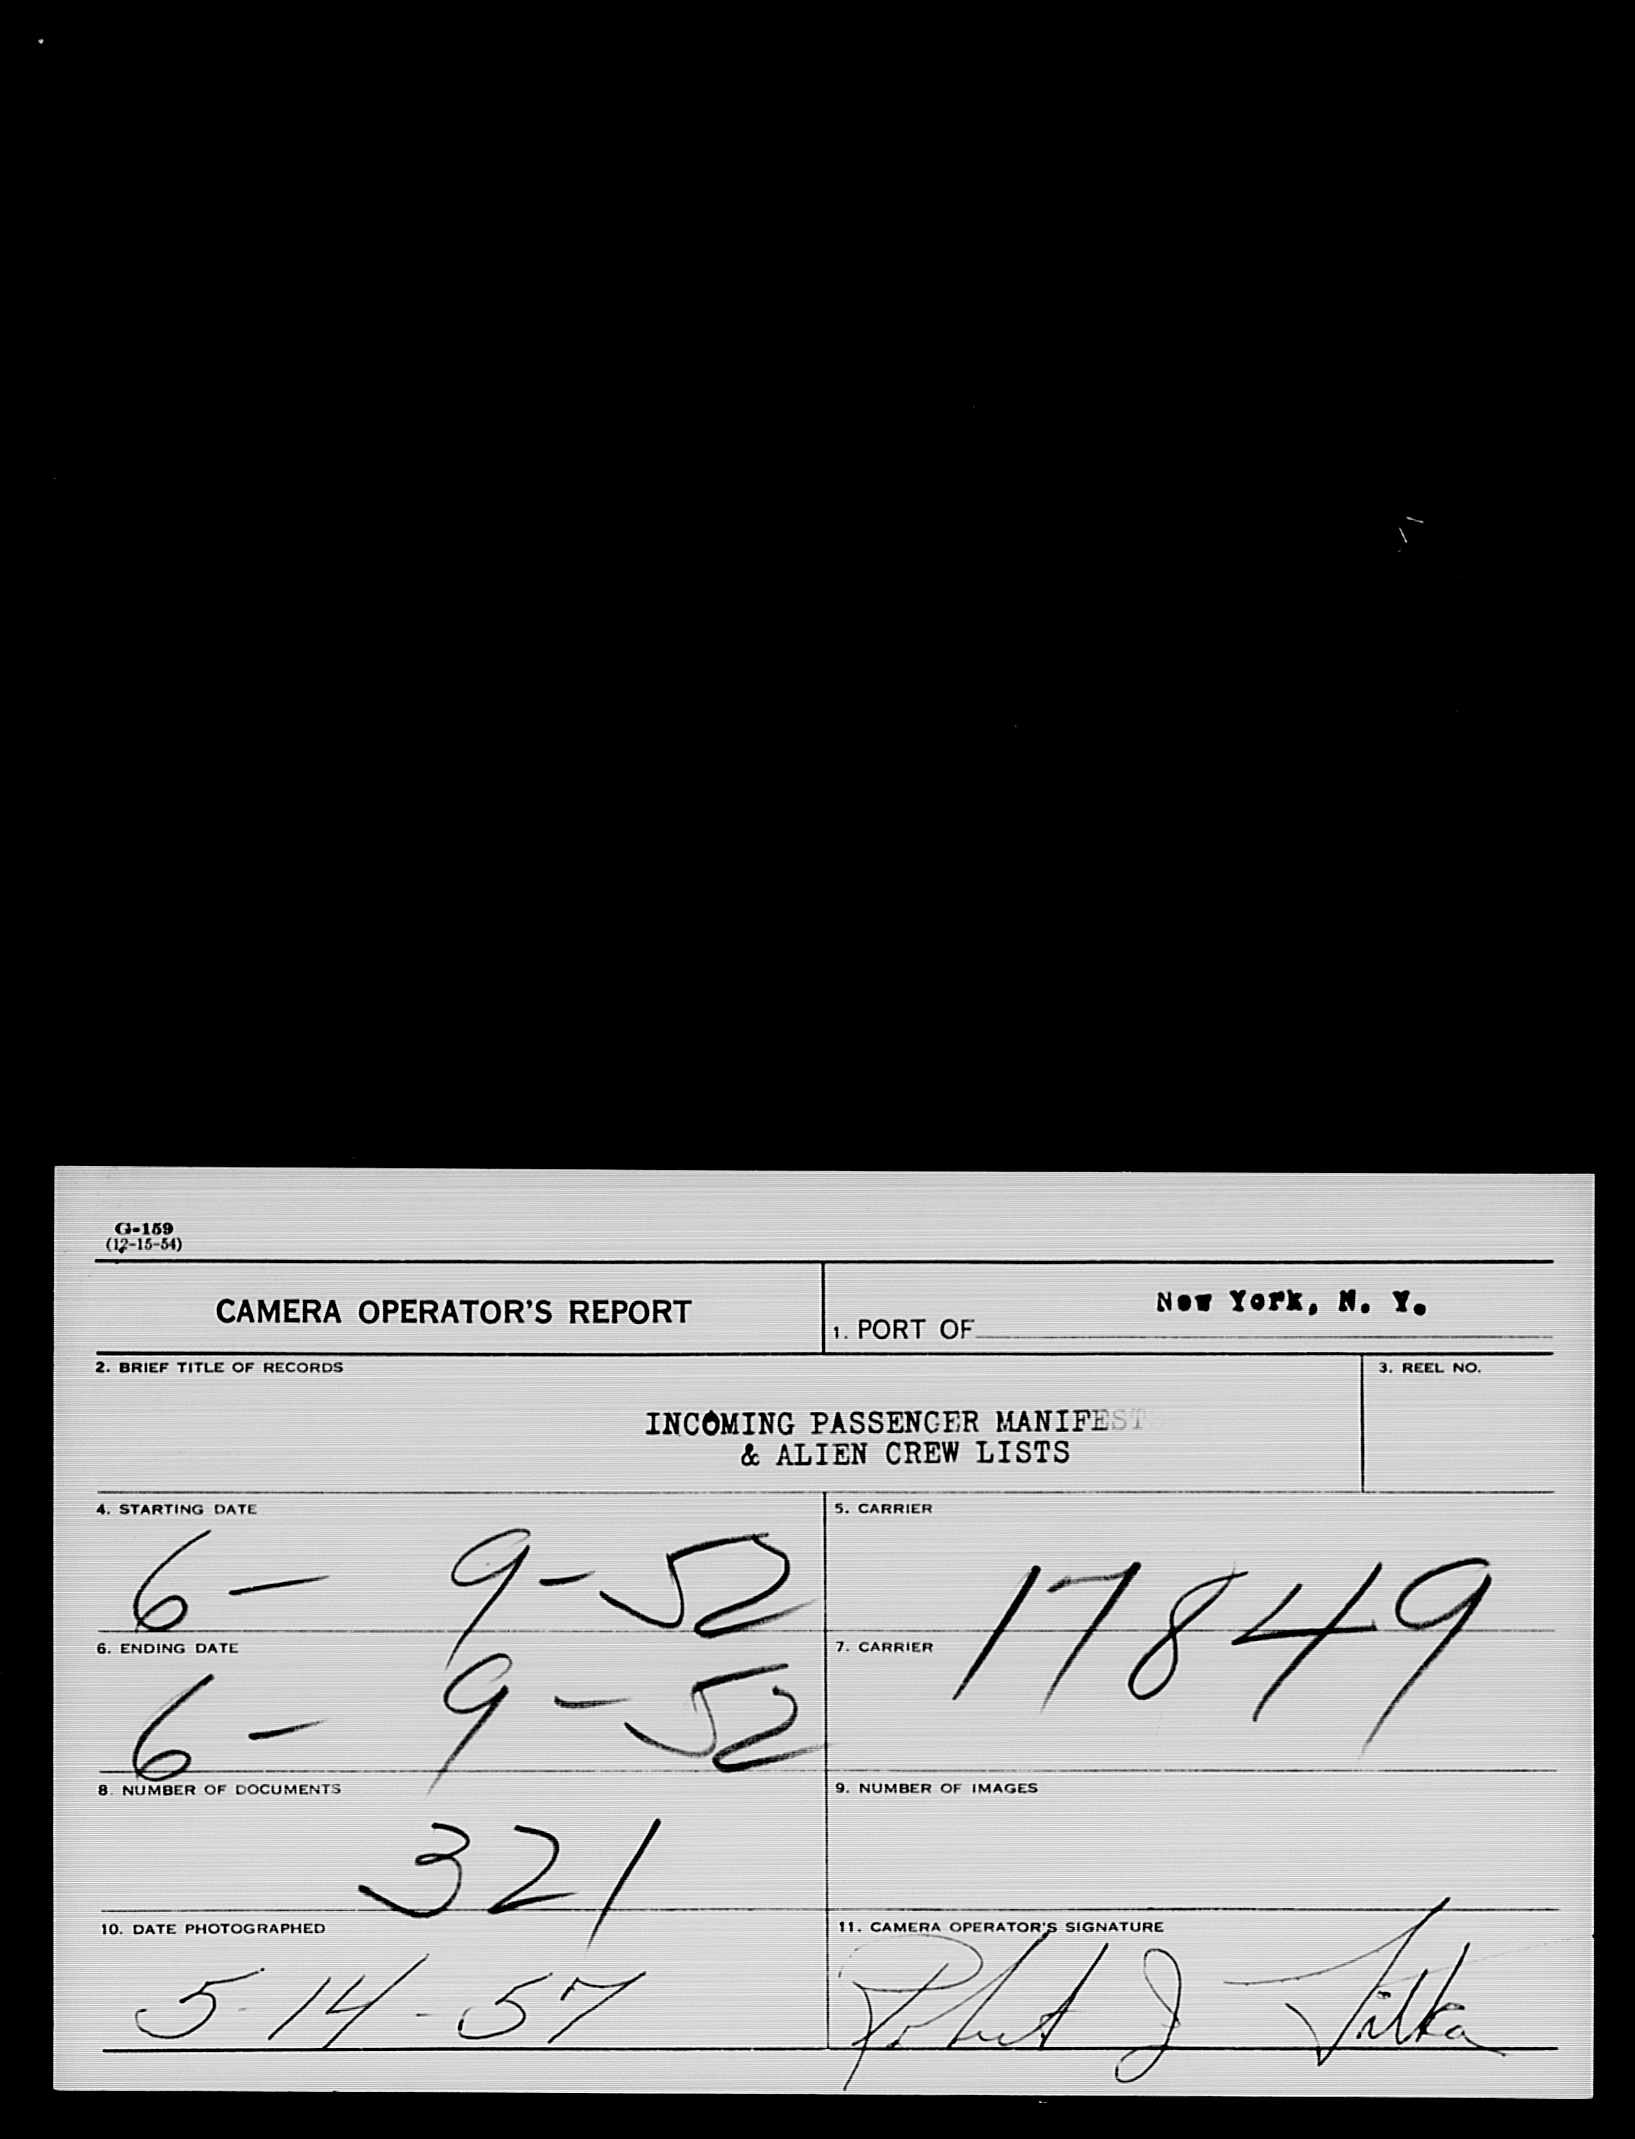 G-159
(12-15-54)
CAMERA OPERATOR'S REPORT
1. PORT OF New York, N. Y.
2. BRIEF TITLE OF RECORDS
3. REEL NO.
INCOMING PASSENGER MANIFEST
& ALIEN CREW LISTS
4. STARTING DATE
5. CARRIER
6 - 9 - 52
17849
6. ENDING DATE
7. CARRIER
6 - 9 - 52
8. NUMBER OF DOCUMENTS
9. NUMBER OF IMAGES
321
10. DATE PHOTOGRAPHED
11. CAMERA OPERATOR'S SIGNATURE
5-14-57
Robert J